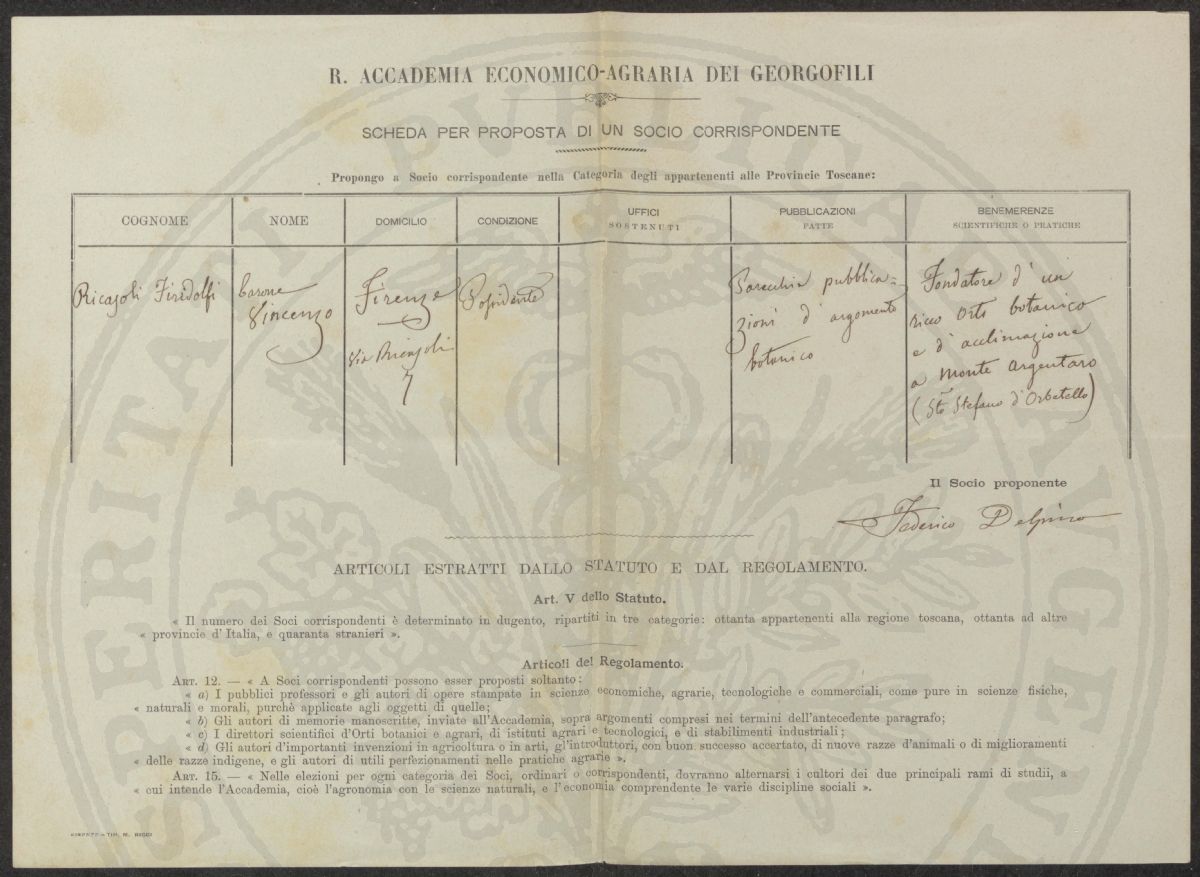 R. ACCADEMIA ECONOMICO-AGRARIA DEI GEORGOFILI
SCHEDA PER PROPOSTA DI UN SOCIO CORRISPONDENTE
Propongo a Socio corrispondente nella Categoria degli appartenenti alle Provincie Toscane:
COGNOME
NOME
DOMICILIO
CONDIZIONE
UFFICI
SOSTENUTI
PUBBLICAZIONI
FATTE
BENEMERENZE
SCIENTIFICHE O PRATICHE
Ricasoli Firidolfi
barone
Vincenzo
Firenze
Via Ricasoli
7
Possidente
Parecchie pubblica=
zioni d'argomento
botanico
Fondatore d'un
ricco Orto botanico
e d'acclimazione
a Monte Argentaro
(Sto Stefano d'Orbetello)
Il Socio proponente
Federico Delpino
ARTICOLI ESTRATTI DALLO STATUTO E DAL REGOLAMENTO.
Art. V dello Statuto.
« Il numero dei Soci corrispondenti è determinato in dugento, ripartiti in tre categorie: ottanta appartenenti alla regione toscana, ottanta ad altre
« provincie d'Italia, e quaranta stranieri ».
Articoli del Regolamento.
ART. 12. — « A Soci corrispondenti possono esser proposti soltanto:
« a) I pubblici professori e gli autori di opere stampate in scienze economiche, agrarie, tecnologiche e commerciali, come pure in scienze fisiche,
« naturali e morali, purchè applicate agli oggetti di quelle;
« b) Gli autori di memorie manoscritte, inviate all'Accademia, sopra argomenti compresi nei termini dell'antecedente paragrafo;
« c) I direttori scientifici d'Orti botanici e agrari, di istituti agrari e tecnologici, e di stabilimenti industriali;
« d) Gli autori d'importanti invenzioni in agricoltura o in arti, gl'introduttori, con buon successo accertato, di nuove razze d'animali o di miglioramenti
« delle razze indigene, e gli autori di utili perfezionamenti nelle pratiche agrarie ».
ART. 15. — « Nelle elezioni per ogni categoria dei Soci, ordinari o corrispondenti, dovranno alternarsi i cultori dei due principali rami di studii, a
« cui intende l'Accademia, cioè l'agronomia con le scienze naturali, e l'economia comprendente le varie discipline sociali ».
FIRENZE – TIP. M. RICCI